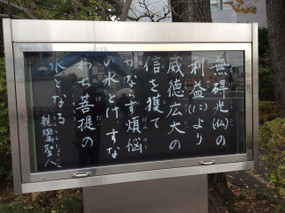 無碍光(仏)の
利益(に)より
威徳広大の
信を獲て
かならず煩悩
の氷とけすな
わち菩提の
水となる
親鸞聖人